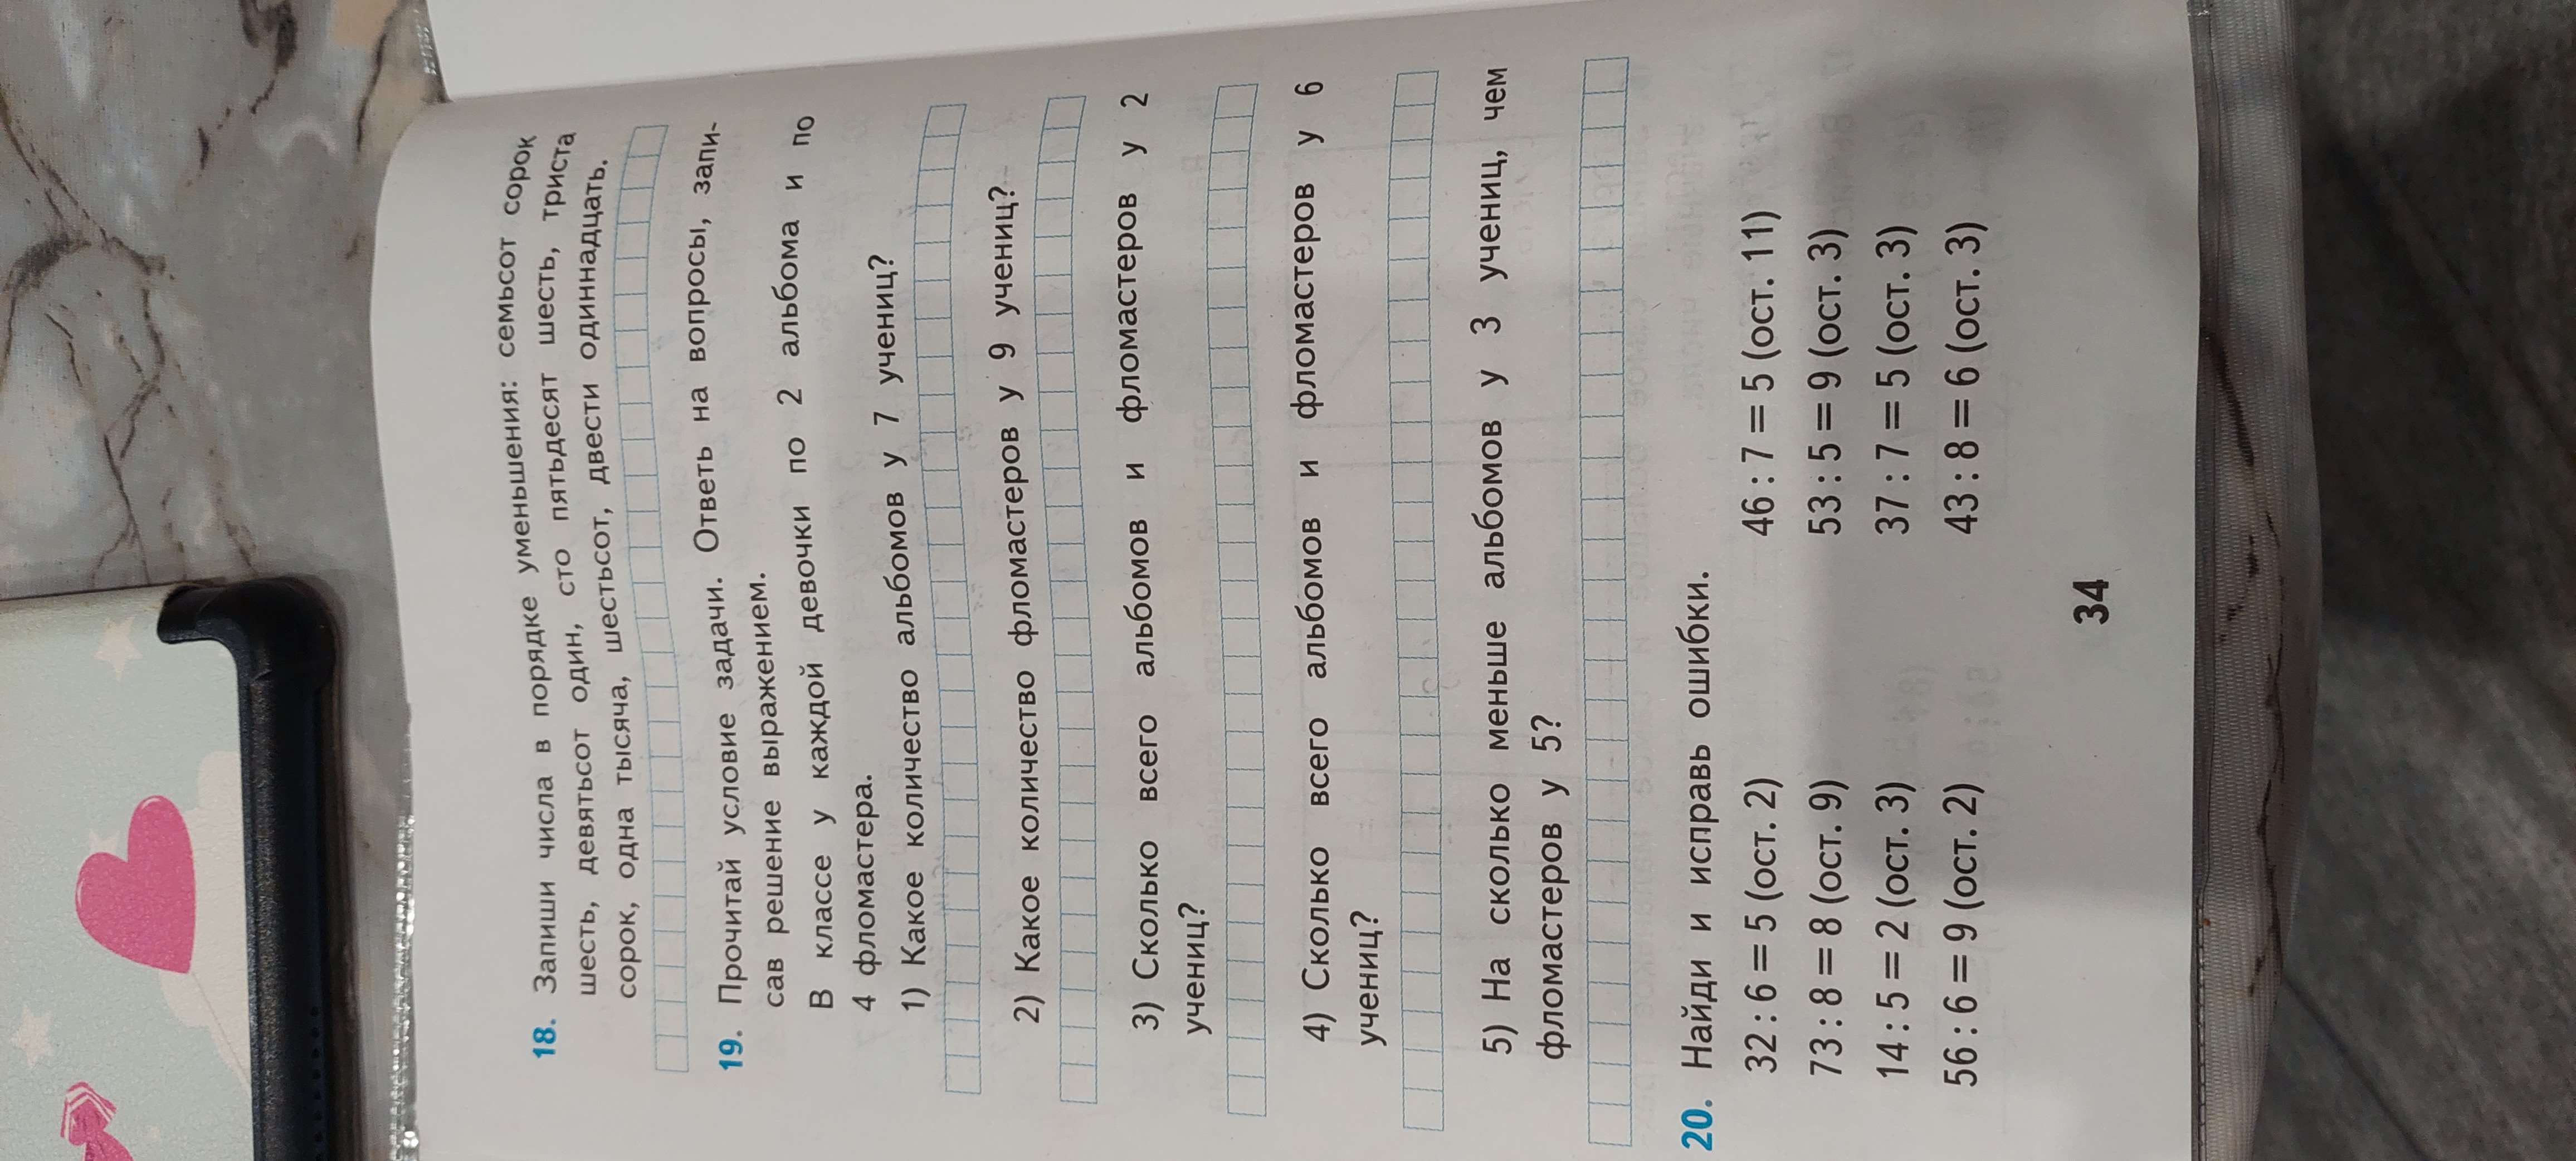 18. Запиши числа в порядке уменьшения: семьсот сорок
шесть, девятьсот один, сто пятьдесят шесть, триста
сорок, одна тысяча, шестьсот, двести одиннадцать.
19. Прочитай условие задачи. Ответь на вопросы, запи-
сав решение выражением.
В классе у каждой девочки по 2 альбома и по
4 фломастера.
1) Какое количество альбомов у 7 учениц?
2) Какое количество фломастеров у 9 учениц?
3) Сколько всего альбомов и фломастеров у 2
учениц?
4) Сколько всего альбомов и фломастеров у 6
учениц?
5) На сколько меньше альбомов у 3 учениц, чем
фломастеров у 5?
20. Найди и исправь ошибки.
32 : 6 = 5 (ост. 2) 46 : 7 = 5 (ост. 11)
73 : 8 = 8 (ост. 9) 53 : 5 = 9 (ост. 3)
14 : 5 = 2 (ост. 3) 37 : 7 = 5 (ост. 3)
56 : 6 = 9 (ост. 2) 43 : 8 = 6 (ост. 3)
34